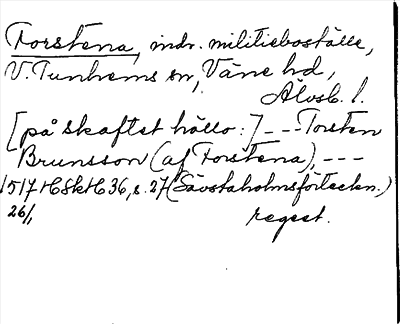 Forstena, indr. militieboställe,
V. Tunhems sn, Väne hd,
Älvsb. l.
[på skaftet hållo:] --- Torsten
Brunsson (af Forstena), ---
1517 HSkH 36, s. 27 (Sävstaholmsförteckn.)
26/1 regest.